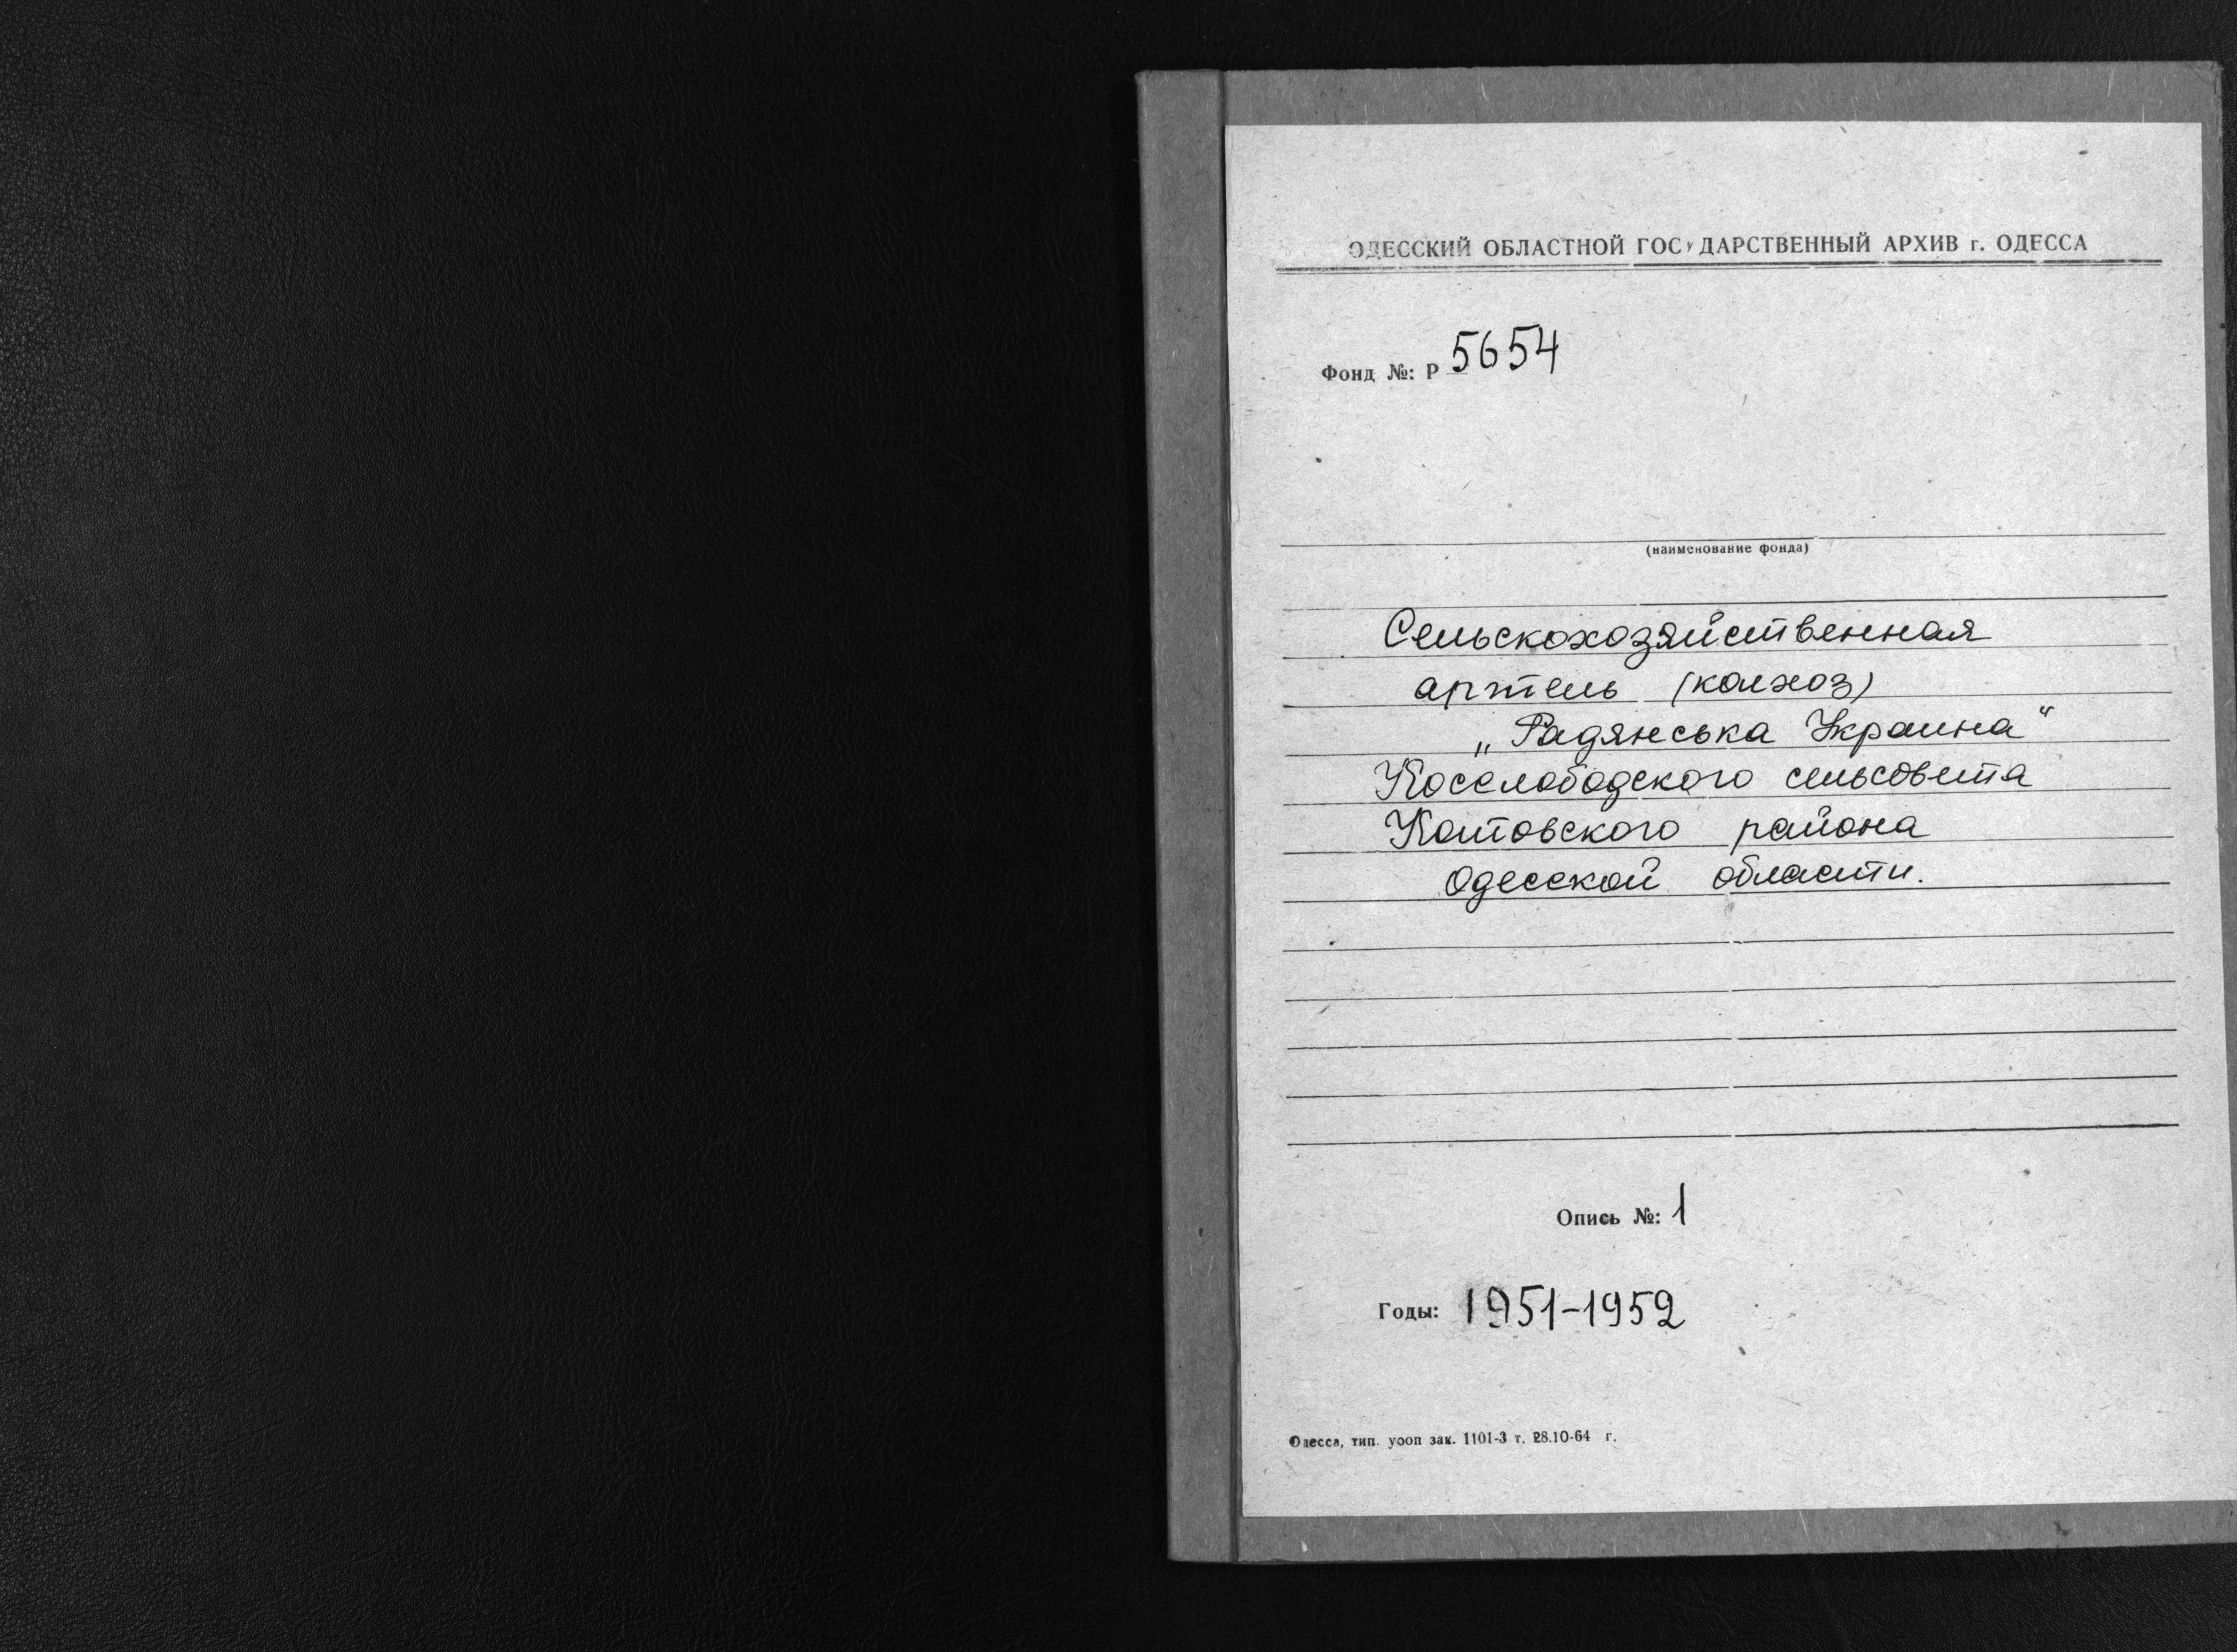 ОДЕССКИЙ ОБЛАСТНОЙ ГОСУДАРСТВЕННЫЙ АРХИВ г. ОДЕССА
Фонд №: Р 5654
(наименование фонда)
Сельскохозяйственная
артель (колхоз)
„Радянська Украина“
Косслободского сельсовета
Котовского района
Одесской области.
Опись №: 1
Годы: 1951-1952
Одесса, тип. уооп зак. 1101-3 т. 28.10-64 г.